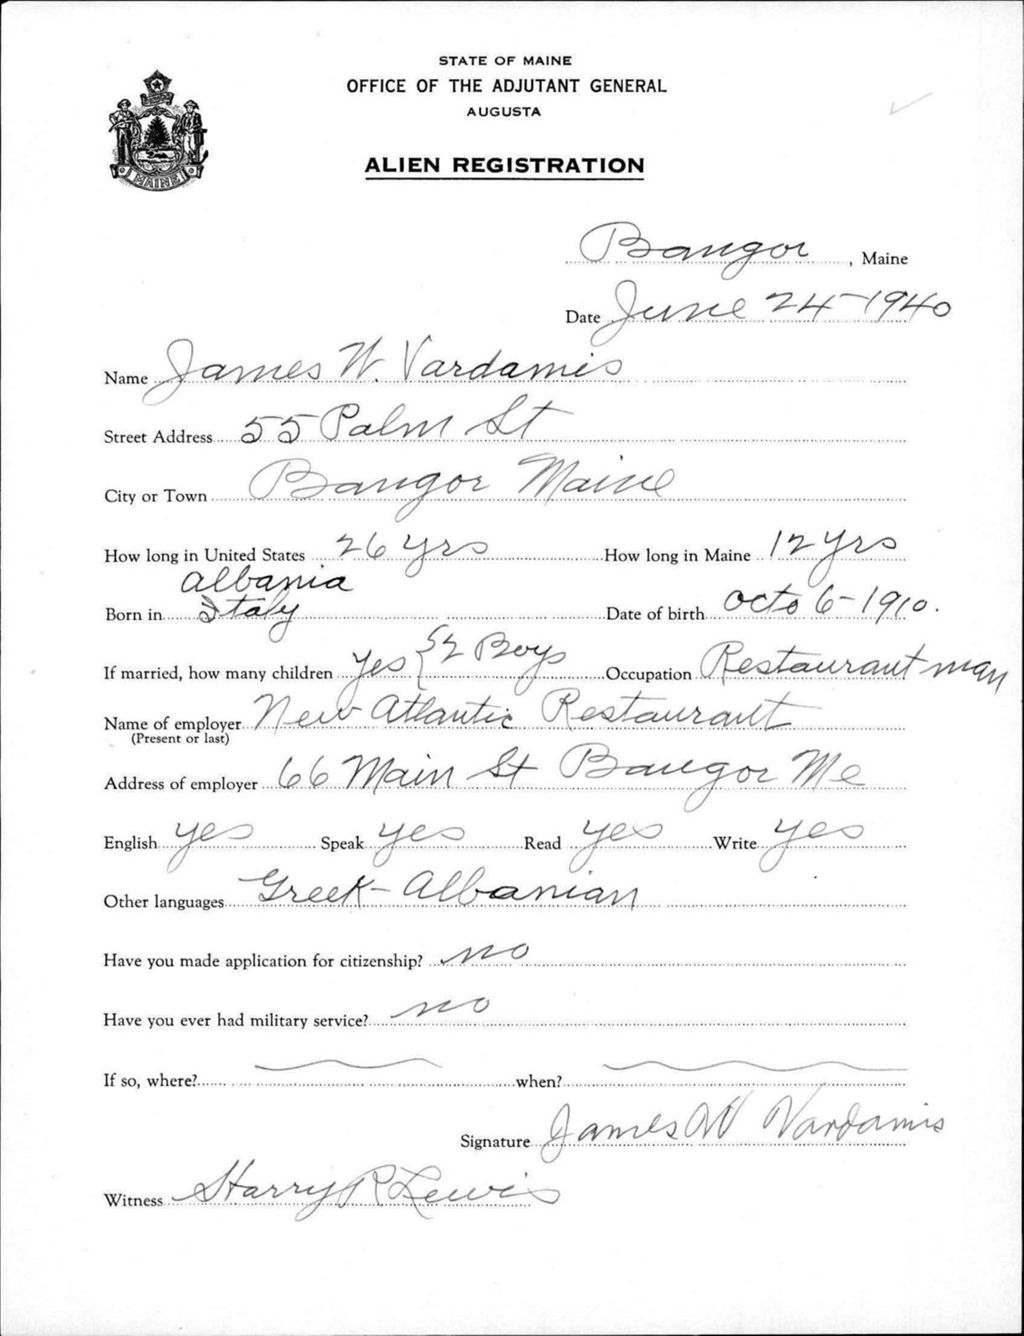 STATE OF MAINE
OFFICE OF THE ADJUTANT GENERAL
AUGUSTA
ALIEN REGISTRATION
MAINE
Bangor, Maine
Date June 24-1940
Name James W. Vardamis
Street Address 55 Palm St
City or Town Bangor Maine
How long in United States 26 yrs How long in Maine 12 yrs
Albania
Born in Italy Date of birth Octo 6-1910.
If married, how many children Yes {2 Boys Occupation Restaurant man
Name of employer New Atlantic Restaurant
(Present or last)
Address of employer 66 Main St Bangor Me
English yes Speak yes Read yes Write yes
Other languages Greek-Albanian
Have you made application for citizenship? no
Have you ever had military service? no
If so, where? when?
Signature James W Vardamis
Witness Harry R Lewis